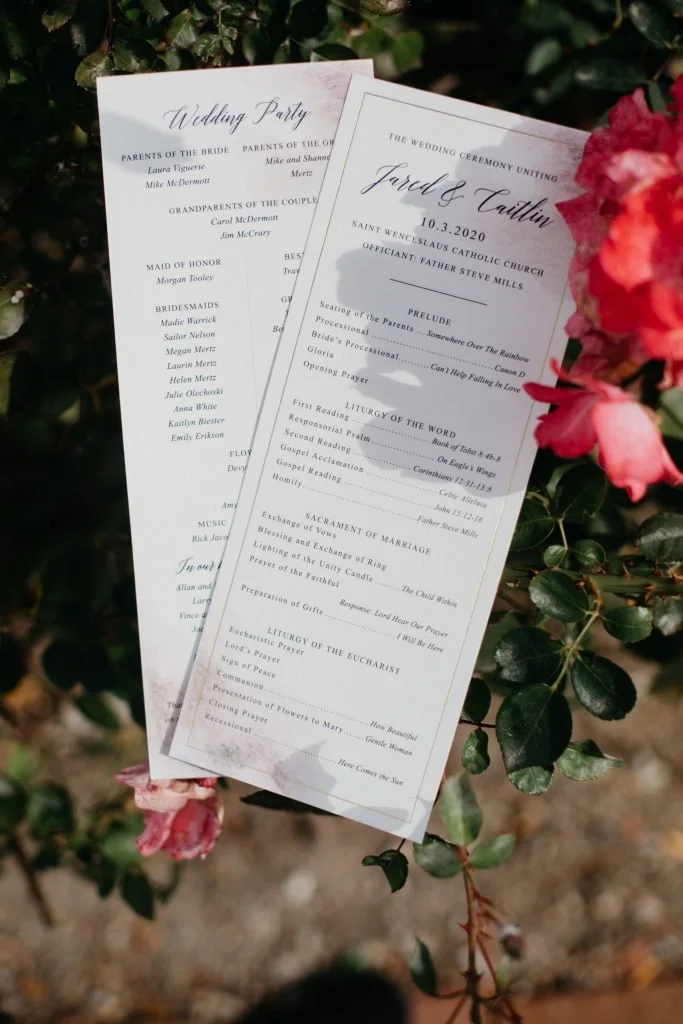 Wedding Party
PARENTS OF THE BRIDE
Laura Viguerie
Mike McDermott
PARENTS OF THE GR
Mike and Shanne
Mertz
GRANDPARENTS OF THE COUPLE
Carol McDermott
Jim McCrary
MAID OF HONOR
Morgan Tooley
BES
Trav
BRIDESMAIDS
Madie Warrick
Sailor Nelson
Megan Mertz
Laurin Mertz
Helen Mertz
Julie Olechoski
Anna White
Kaitlyn Biester
Emily Erikson
FLO
Devy
Amy
MUSIC
Rick Jaco
In our
Allan and
Larr
Vince a
THE WEDDING CEREMONY UNITING
Jared & Caitlin
10.3.2020
SAINT WENCESLAUS CATHOLIC CHURCH
OFFICIANT: FATHER STEVE MILLS
PRELUDE
Seating of the Parents ... Somewhere Over The Rainbow
Processional ........................ Canon D
Bride's Processional ............ Can't Help Falling In Love
Gloria
Opening Prayer
LITURGY OF THE WORD
First Reading ........................ Book of Tobit 8:4b-8
Responsorial Psalm ........................ On Eagle's Wings
Second Reading ........................ Corinthians 12:31-13:8
Gospel Acclamation ........................ Celtic Alleluia
Gospel Reading ........................ John 15:12-16
Homily ........................ Father Steve Mills
SACRAMENT OF MARRIAGE
Exchange of Vows
Blessing and Exchange of Ring
Lighting of the Unity Candle ...... The Child Within
Prayer of the Faithful
Response: Lord Hear Our Prayer
Preparation of Gifts ........................ I Will Be Here
LITURGY OF THE EUCHARIST
Eucharistic Prayer
Lord's Prayer
Sign of Peace
Communion ........................ How Beautiful
Presentation of Flowers to Mary ...... Gentle Woman
Closing Prayer
Recessional ........................ Here Comes the Sun